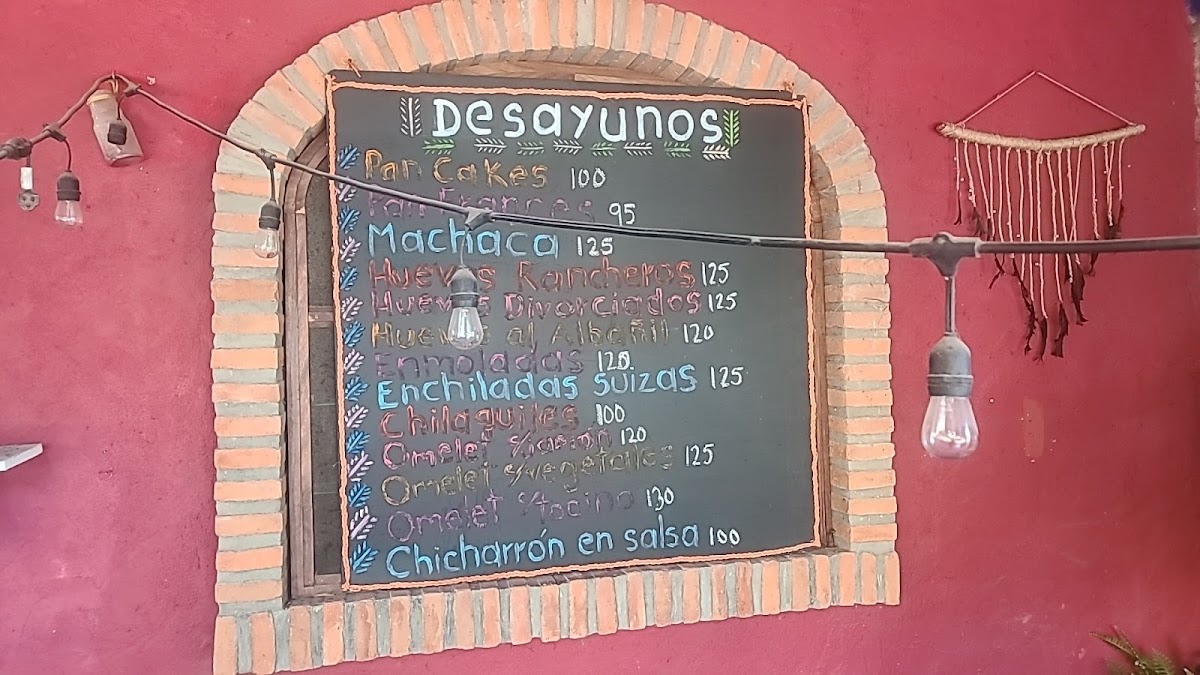 Desayunos
Pan Cakes 100
Pan Frances 95
Machaca 125
Huevos Rancheros 125
Huevos Divorciados 125
Huevos al Albañil 120
Enmoladas 120.
Enchiladas suizas 125
Chilaquiles 100
Omelet c/jamón 120
Omelet c/vegetales 125
Omelet c/tocino 130
Chicharrón en salsa 100